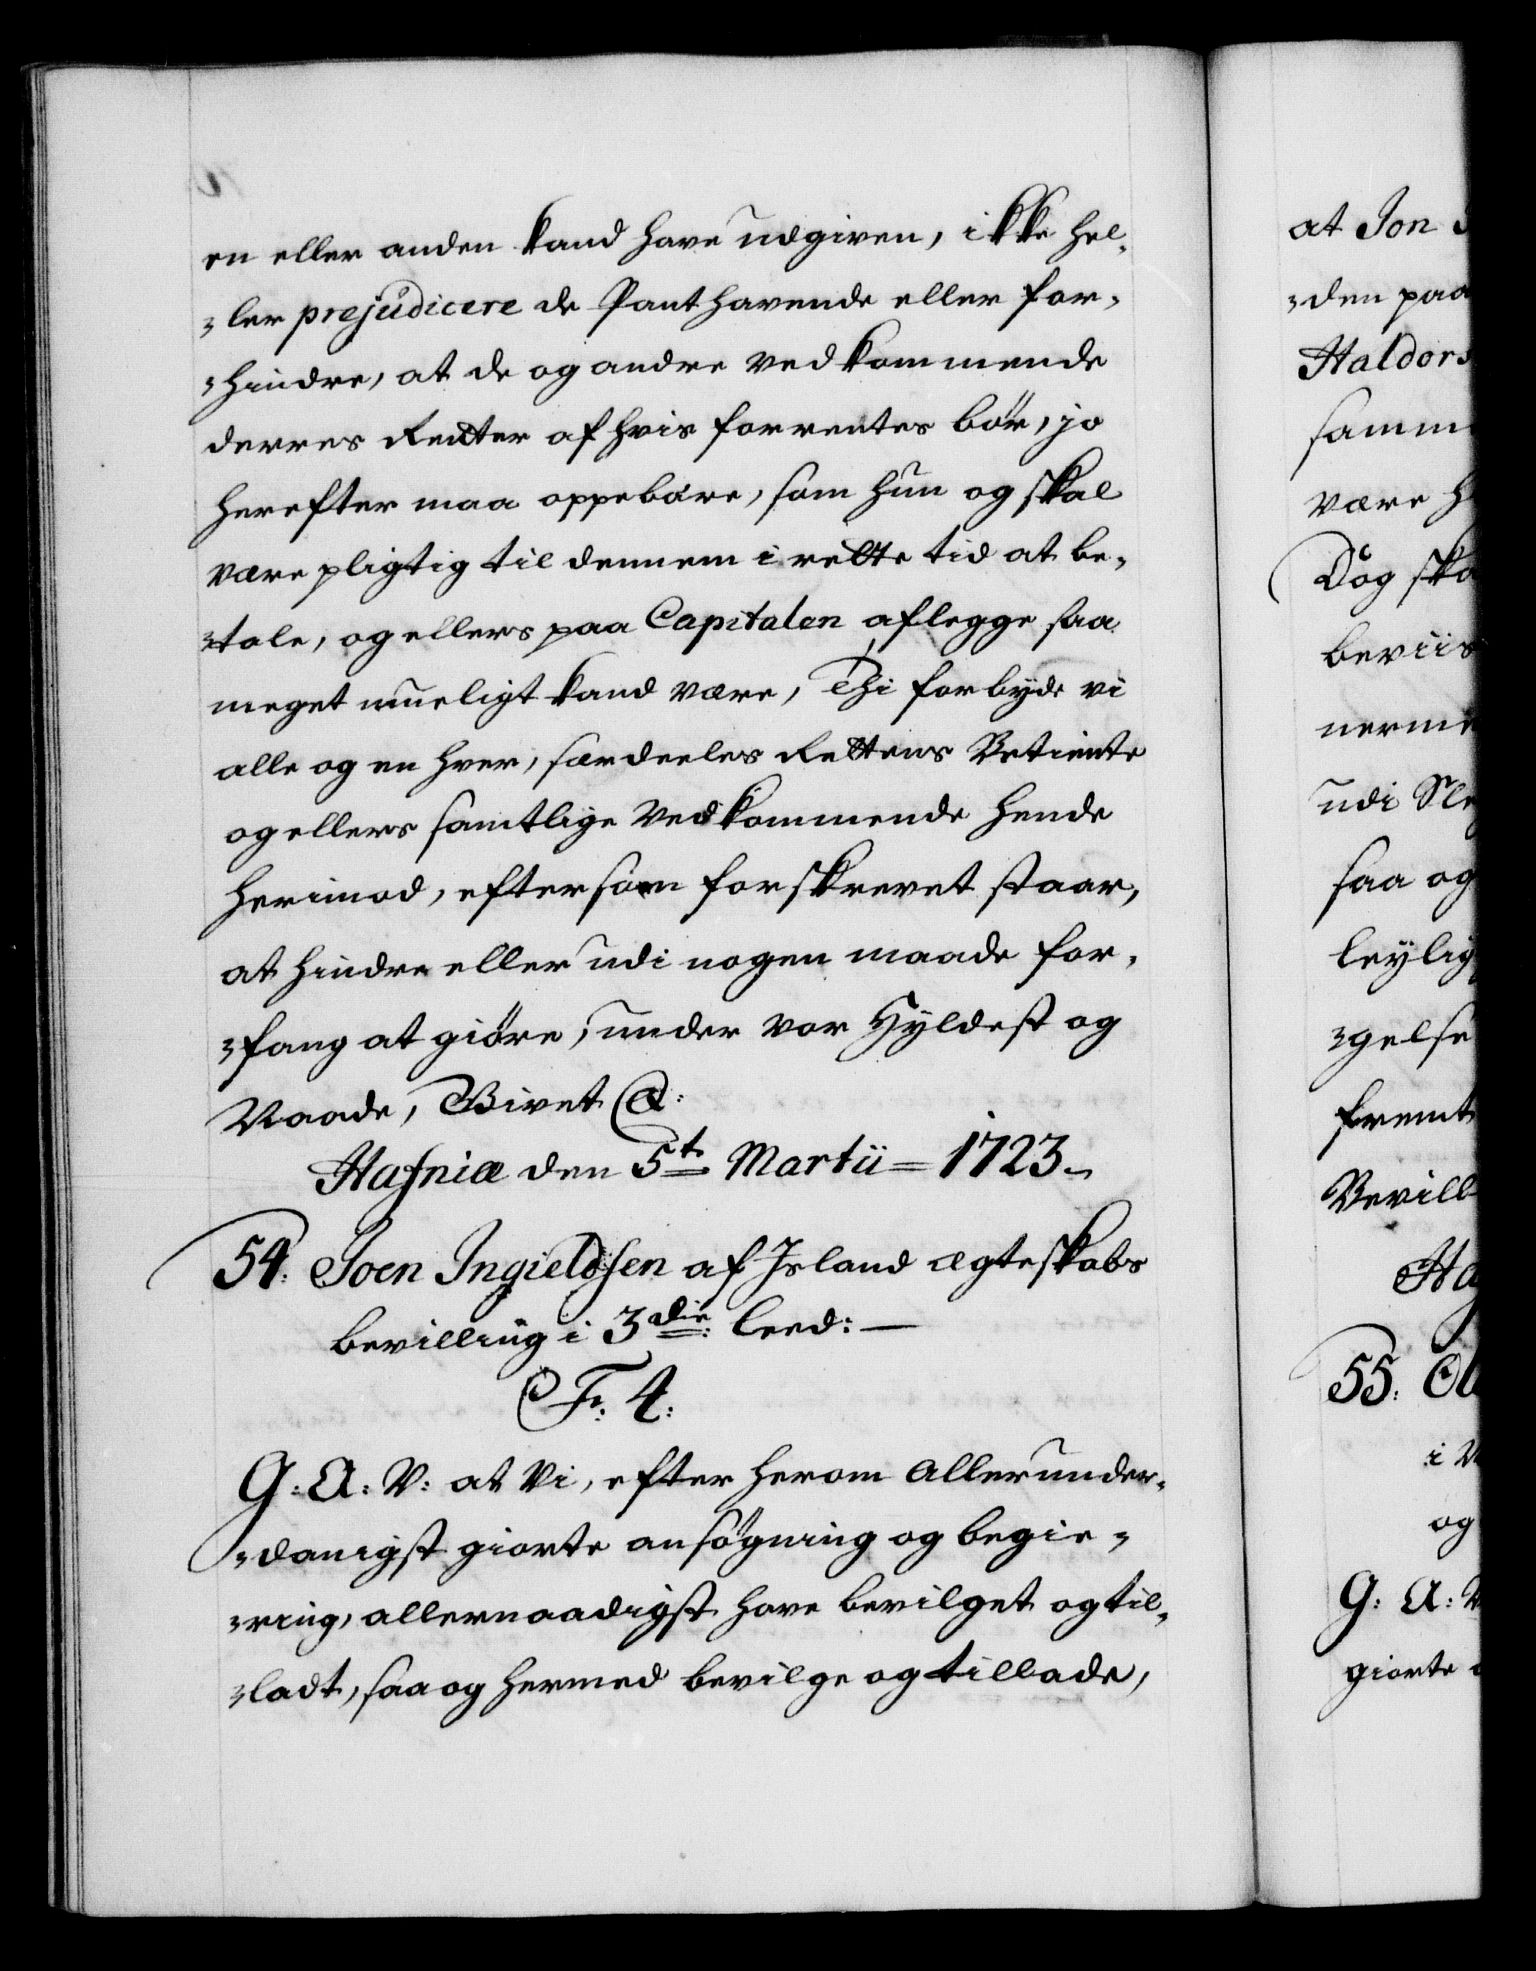 en eller anden kand have udgiven, ikke hel-
-ler prejudicere de Panthavende eller for-
-hindre, at de og andre vedkommende
derres Rentter af hvis forrentes bör, jo
herefter maa oppebære, som hun og skal
være pligtig til dennem i rette tid at be-
-tale, og ellers paa Capitalen aflegge saa
meget mueligt kand være, Thi forbyde vi
alle og en hver, særdeeles Rettens Betiente
og ellers samtlige Vedkommende hende
herimod, eftersom forskrevet staar,
at hindre eller udi nogen maade for-
-fang at giöre, under vor Hyldest og
Naade, Givet @:
Hafniæ den 5t Martii = 1723
54: Joen Ingieldsen af Island ægteskabs
bevilling i 3die: leed: —
Fr. 4:
G: A: V: at Vi, efter herom allerunder-
-danigst giorte ansögning og begie-
-ring, allernaadigst have bevilget og til-
-ladt, saa og hermed bevilge og tillade,
at Jon
-den paa
Haldors
samm
være
Dog ska
beviis
nerme
udi
saa og
leylig
-gelse
fremt
Bevill
Ha
55:
i
og
G: A:
giorte